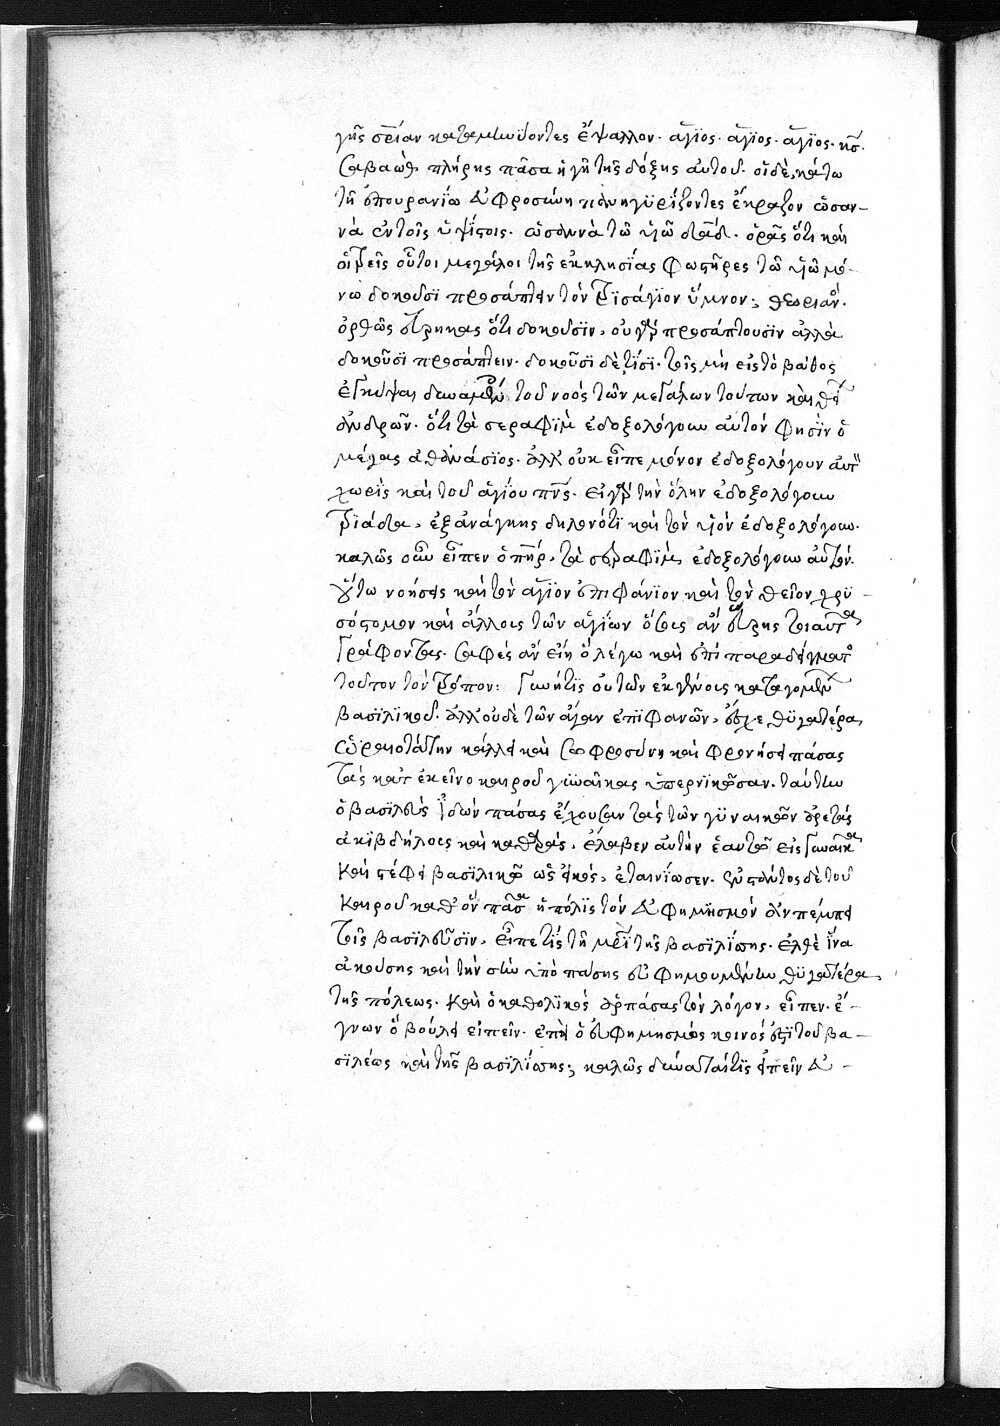 γῆς σρίαν καταμηνύοντες ἔψαλλον. ἅγϊος. ἅγϊος. ἅγϊος. κς̅.
Σαβαὼθ πλήρης πᾶσα ἡ γῆ τῆς δόξης αὐτοῦ. οἱ δὲ, κάτω
τῇ ἐπουρανΐω εὐφροσύνη πανηγϋρίζοντες ἔκραζον ὡσαν-
νὰ ἐν τοῖς ὑψίστοις. ὡσαννὰ τῶ υἱῶ δαδ̅. ὁρᾶς ὅτι καὶ
οἱ τρεῖς οὗτοι μεγάλοι τῆς ἐκκλησΐας φωστῆρες τῶ υἱῶ μό-
νω δοκοῦσϊ προσάπτειν τὸν τρϊσάγϊον ὕμνον;
ὀρθῶς εἴρηκας ὅτι δοκοῦσϊν, οὐ γὰρ προσάπτουσϊν ἀλλὰ
δοκοῦσϊ προσάπτειν. δοκοῦσϊ δὲ τϊσϊ. τοῖς μὴ εἰς τὸ βάθος
ἐγκύψαι δυναμένοις τοῦ νοὸς τῶν μεγάλων τούτων καὶ θείων
ἀνδρῶν. ὅτι τὰ σεραφὶμ ἐδοξολόγουν αὐτόν φησϊν ὁ
μέγας ἀθανάσϊος. ἀλλ' οὐκ εἶπε μόνον ἐδοξολόγουν αὐτὸν
χωρὶς καὶ τοῦ ἁγΐου πνς̅. εἰ γὰρ τὴν ὅλην ἐδοξολόγουν
τρϊάδα, ἐξ ἀνάγκης δηλονότϊ καὶ τὸν υἱὸν ἐδοξολόγουν.
καλῶς οὖν εἶπεν ὁ πηρ̅, τὰ σεραφὶμ ἐδοξολόγουν αὐτόν.
οὕτω νοήσεις καὶ τὸν ἅγϊον ἐπιφάνϊον καὶ τὸν θεῖον χρυ-
σόστομον καὶ ἄλλους τῶν ἁγΐων ὅσους ἂν εὕρης τοιαῦτα
γράφοντας. σαφὲς ἂν εἴη ὃ λέγω καὶ ἐπὶ παραδείγματος
τοῦτον τὸν τρόπον: γυνή τϊς οὐ τῶν ἐκ γένους καταγομένων
βασϊλϊκοῦ. ἀλλ' οὐδὲ τῶν ἄγαν ἐπϊφανῶν, ἔσχε θϋγατέρα,
ὡραιοτάτην κάλλει καὶ σωφροσύνη καὶ φρονήσει πάσας
τὰς κατ' ἐκεῖνο καιροῦ γυναῖκας ὑπερνϊκῶσαν. ταύτην
ὁ βασϊλεὺς ἰδὼν πάσας ἔχουσαν τὰς τῶν γϋναικῶν ἀρετὰς
ἀκϊβδήλους καὶ καθαρὰς, ἔλαβεν αὐτὴν ἑαυτῶ εἰς γυναῖκα
καὶ στέφει βασϊλικῶ ὡς εἰκὸς, ἐταινΐωσεν. ἐν παντὸς δὲ τοῦ
καιροῦ καθ' ὃν πᾶσα ἡ πόλϊς τὸν εὐφημϊσμὸν ἀνπέμπει
τοῖς βασϊλεῦσϊν, εἶπε τὶς τῆ μρϊ̅ τῆς βασϊλΐσσης. ἐλθὲ ἵνα
ἀκούσης καὶ τὴν σὴν ὑπὸ πάσης εὐφημουμένην θϋγατέρα,
τῆς πόλεως. καὶ ὁ καθολϊκὸς ἁρπάσας τὸν λόγον, εἶπεν. ἔ-
γνων ὃ βούλει εἰπεῖν. ἐπεὶ ὁ εὐφημησμὸς κοινός ἐστϊ τοῦ βα-
σϊλέως καὶ τῆς βασϊλΐσσης; καλῶς δύναταί τϊς εἰπεῖν εὐ-